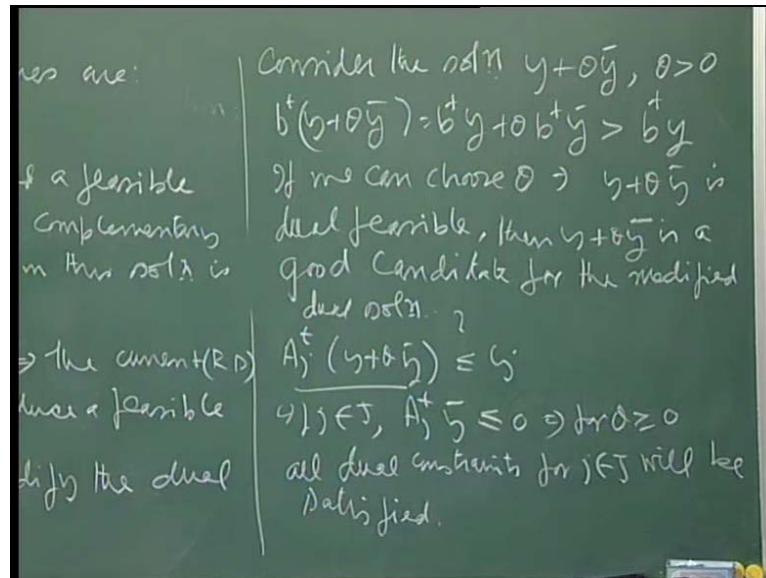 are:
a feasible
complementary
m this soln is
⇒ the current (RD)
duce a feasible
dify the dual
Consider the soln y+θȳ, θ>0
bᵗ(y+θȳ) = bᵗy+θbᵗȳ > bᵗy
If we can choose θ ∋ y+θȳ is
dual feasible, then y+θȳ is a
good candidate for the modified
dual soln.
Aⱼᵗ (y+θȳ) ≤ cⱼ ?
If j∈J, Aⱼᵗ ȳ ≤ 0 ⇒ for θ ≥ 0
all dual constraints for j∈J will be
satisfied.